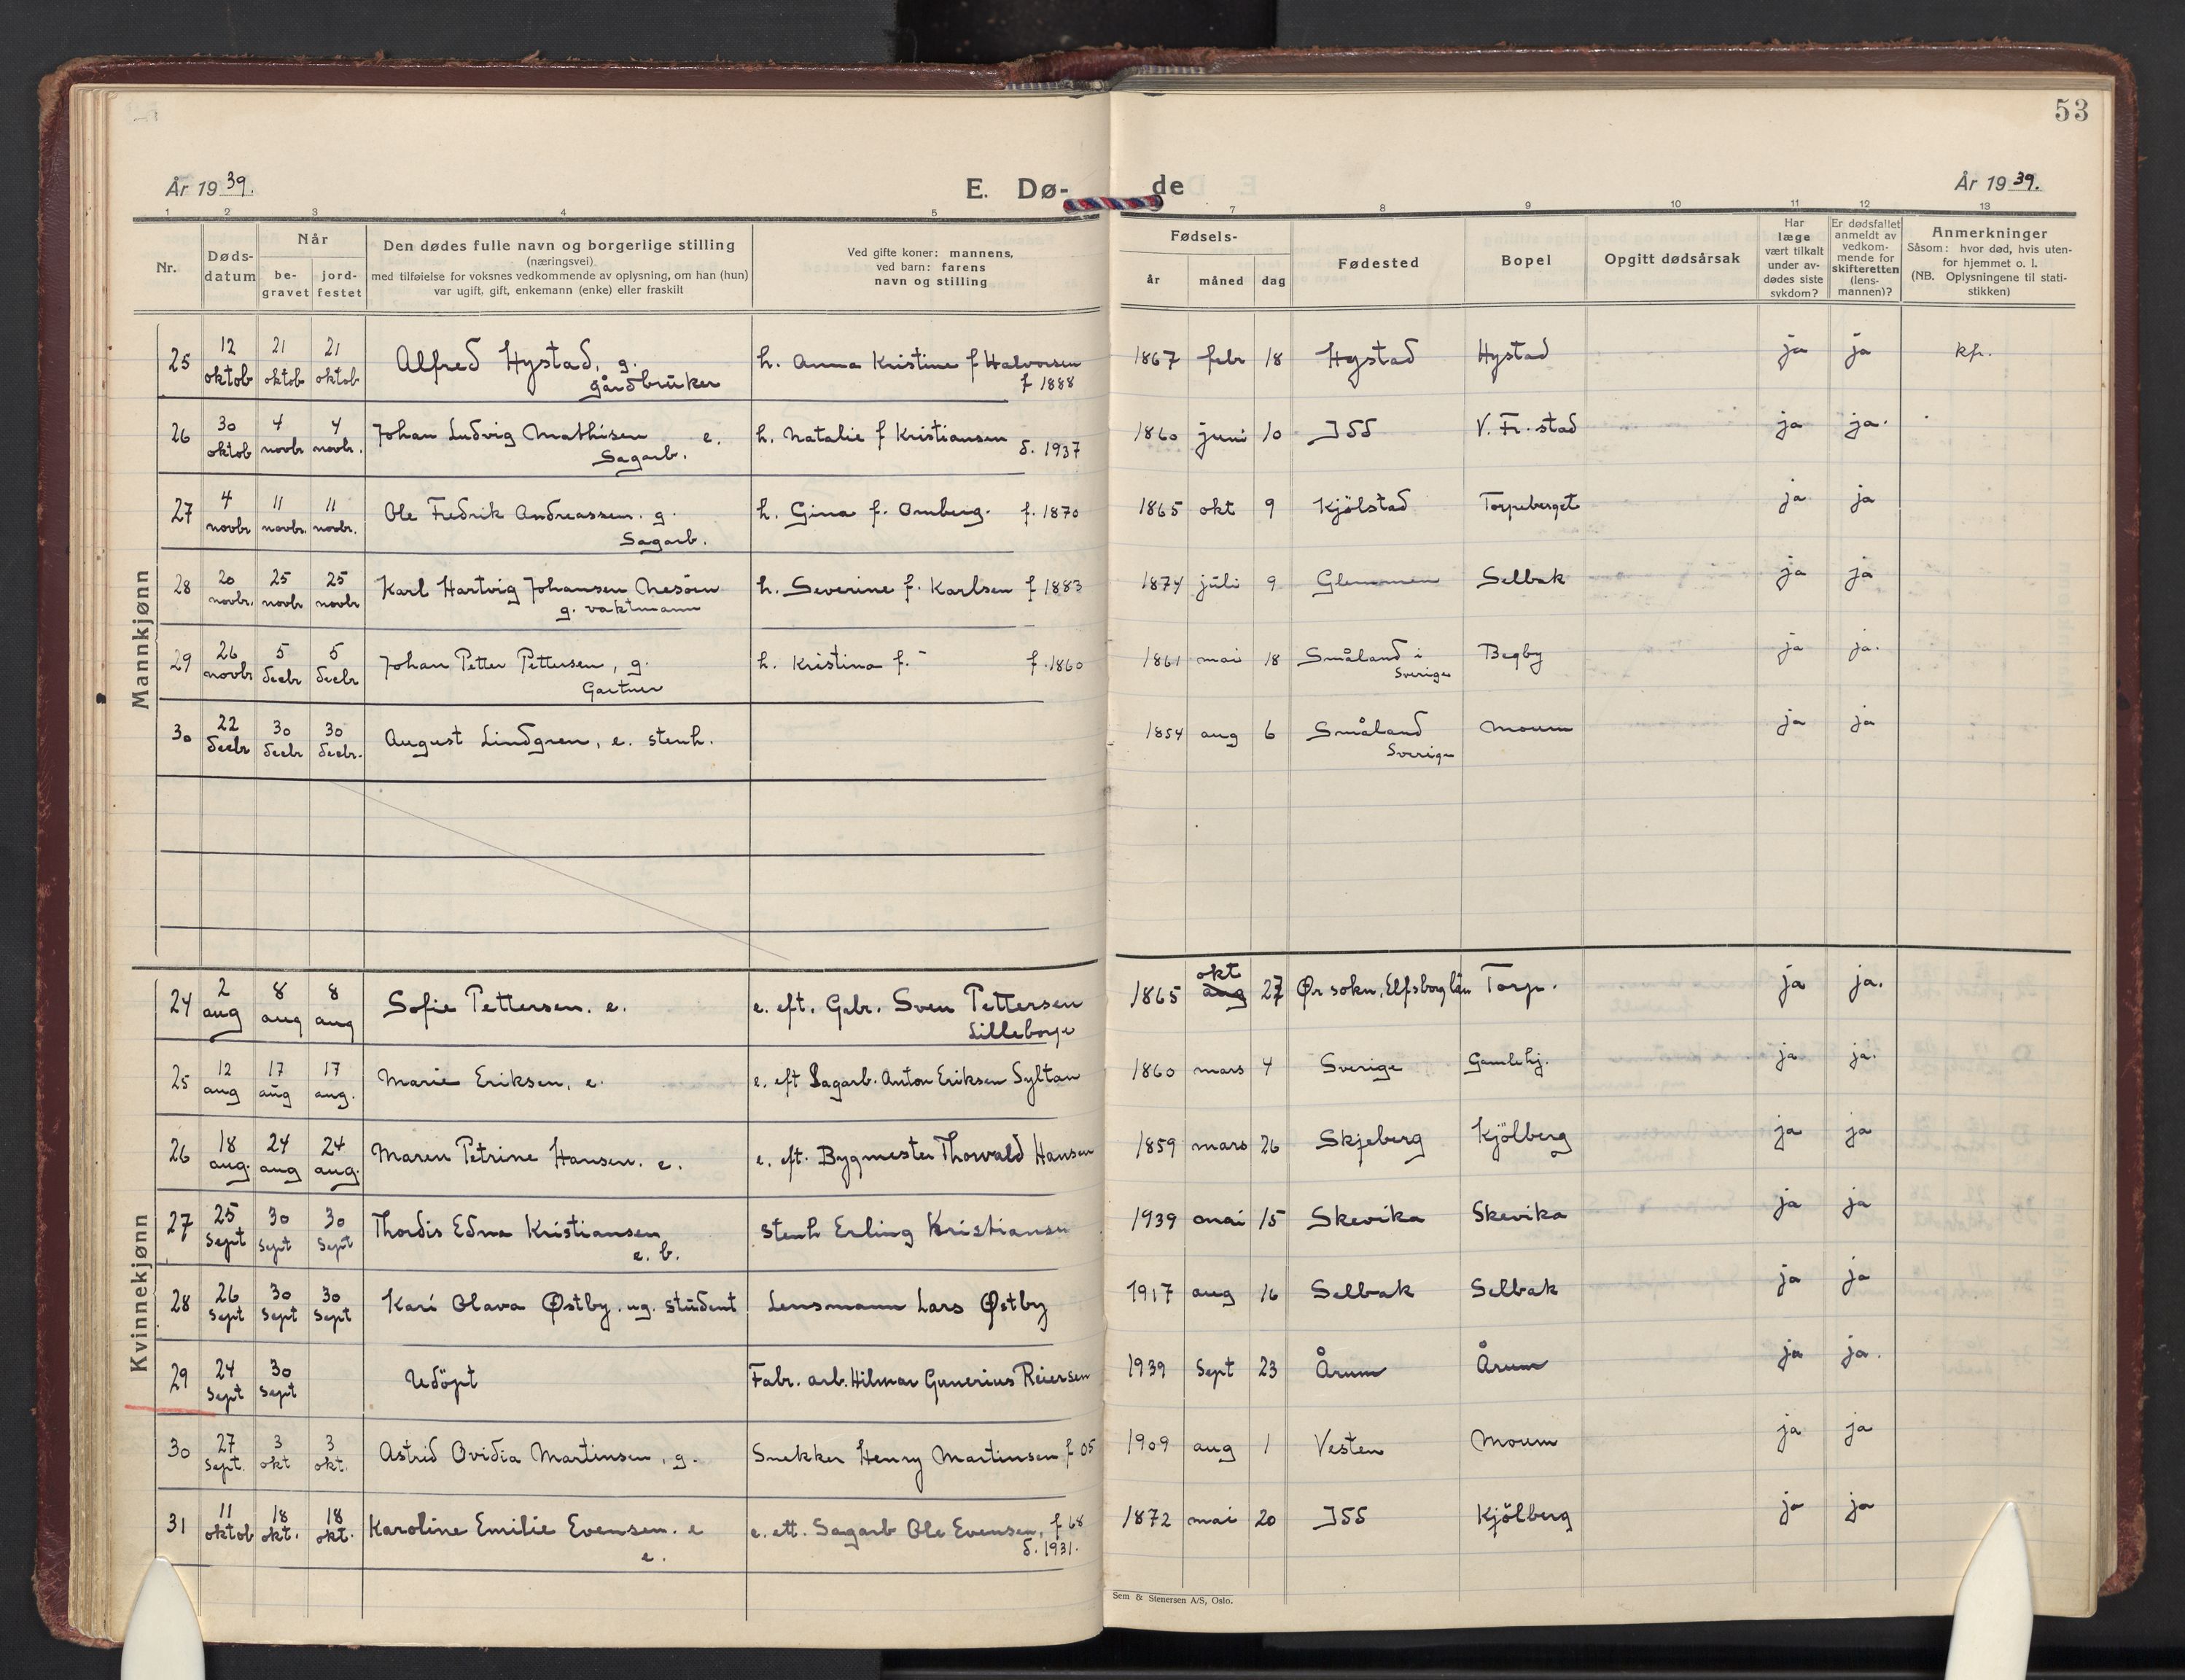 53
År 1939.
E. Dø-
de
År 1939.
1 2 3 4 5 7 8 9 10 11 12 13
Nr.
Døds-
datum
Når
be-
gravet
jord-
festet
Den dødes fulle navn og borgerlige stilling
(næringsvei)
med tilføielse for voksnes vedkommende av oplysning, om han (hun)
var ugift, gift, enkemann (enke) eller fraskilt
Ved gifte koner: mannens,
ved barn: farens
navn og stilling
Fødsels-
år måned dag
Fødested
Bopel
Opgitt dødsårsak
Har
læge
vært tilkalt
under av-
dødes siste
sykdom?
Er dødsfallet
anmeldt av
vedkom-
mende for
skifteretten
(lens-
mannen)?
Anmerkninger
Såsom: hvor død, hvis uten-
for hjemmet o. l.
(NB. Oplysningene til stati-
stikken)
Mannkjønn
25 12 oktob 21 oktob 21 oktob Alfred Hystad, g. h. Anna Kristine f Halvorsen 1867 febr 18 Hystad Hystad ja ja kfr.
gårdbruker f 1888
26 30 oktob 4 novbr 4 novbr. Johan Ludvig Mathisen e. h. Natalie f Kristiansen 1860 juni 10 Idd V. Fr. stad ja ja.
Sagarb. d. 1937
27 4 novbr 11 novbr. 11 novbr. Ole Fredrik Andreassen. g. h. Gina f. Omberg. f. 1870 1865 okt 9 Kjölstad Torpeberget ja ja
Sagarb.
28 20 novbr. 25 novbr 25 novbr Karl Hartvig Johansen Nesöen h. Severine f. Karlsen f 1883 1874 juli 9 Glemmen Selbak ja ja
g. vaktmann
29 26 novbr 5 decbr 5 decbr Johan Petter Pettersen, g. h. Kristina f. - f. 1860 1861 mai 18 Småland i Begby ja ja.
Gartner Sverige
30 22 decbr 30 decbr 30 decbr. August Lindgren, e. stenh. 1854 aug 6 Småland Moum ja ja
Sverige
Kvinnekjønn
24 2 aug 8 aug 8 aug Sofie Pettersen. e. e. eft. Gbr. Sven Pettersen 1865 aug okt 27 Ør sokn, Elfsborg län Torp. ja ja.
Lilleborge
25 12 aug 17 aug 17 aug. Marie Eriksen, e. e. eft Sagarb. Anton Eriksen Syltan 1860 mars 4 Sverige Gamlehj. ja ja.
26 18 aug. 24 aug 24 aug. Maren Petrine Hansen. e. e. eft. Bygmester Thorvald Hansen 1859 mars 26 Skjeberg Kjölberg ja ja
27 25 Sept 30 Sept 30 Sept Thordis Edna Kristiansen stenh Erling Kristiansen 1939 mai 15 Skevika Skevika ja ja
e. b.
28 26 Sept 30 Sept 30 Sept Kari Olava Østby. ug. student Lensmann Lars Østby 1917 aug 16 Selbak Selbak ja ja
29 24 Sept 30 Sept Udöpt Fabr. arb. Hilmar Gunerius Reiersen 1939 Sept 23 Årum Årum ja ja.
30 27 Sept. 3 okt 3 okt. Astrid Ovidia Martinsen, g. Snekker Henry Martinsen f 05 1909 aug 1 Vesten Moum ja ja
31 11 oktob 18 okt. 18 okt. Karoline Emilie Evensen. e e. ett. Sagarb Ole Evensen, f 68 1872 mai 20 Idd Kjölberg ja ja
e. d. 1931.
Sem & Stenersen A/S, Oslo.